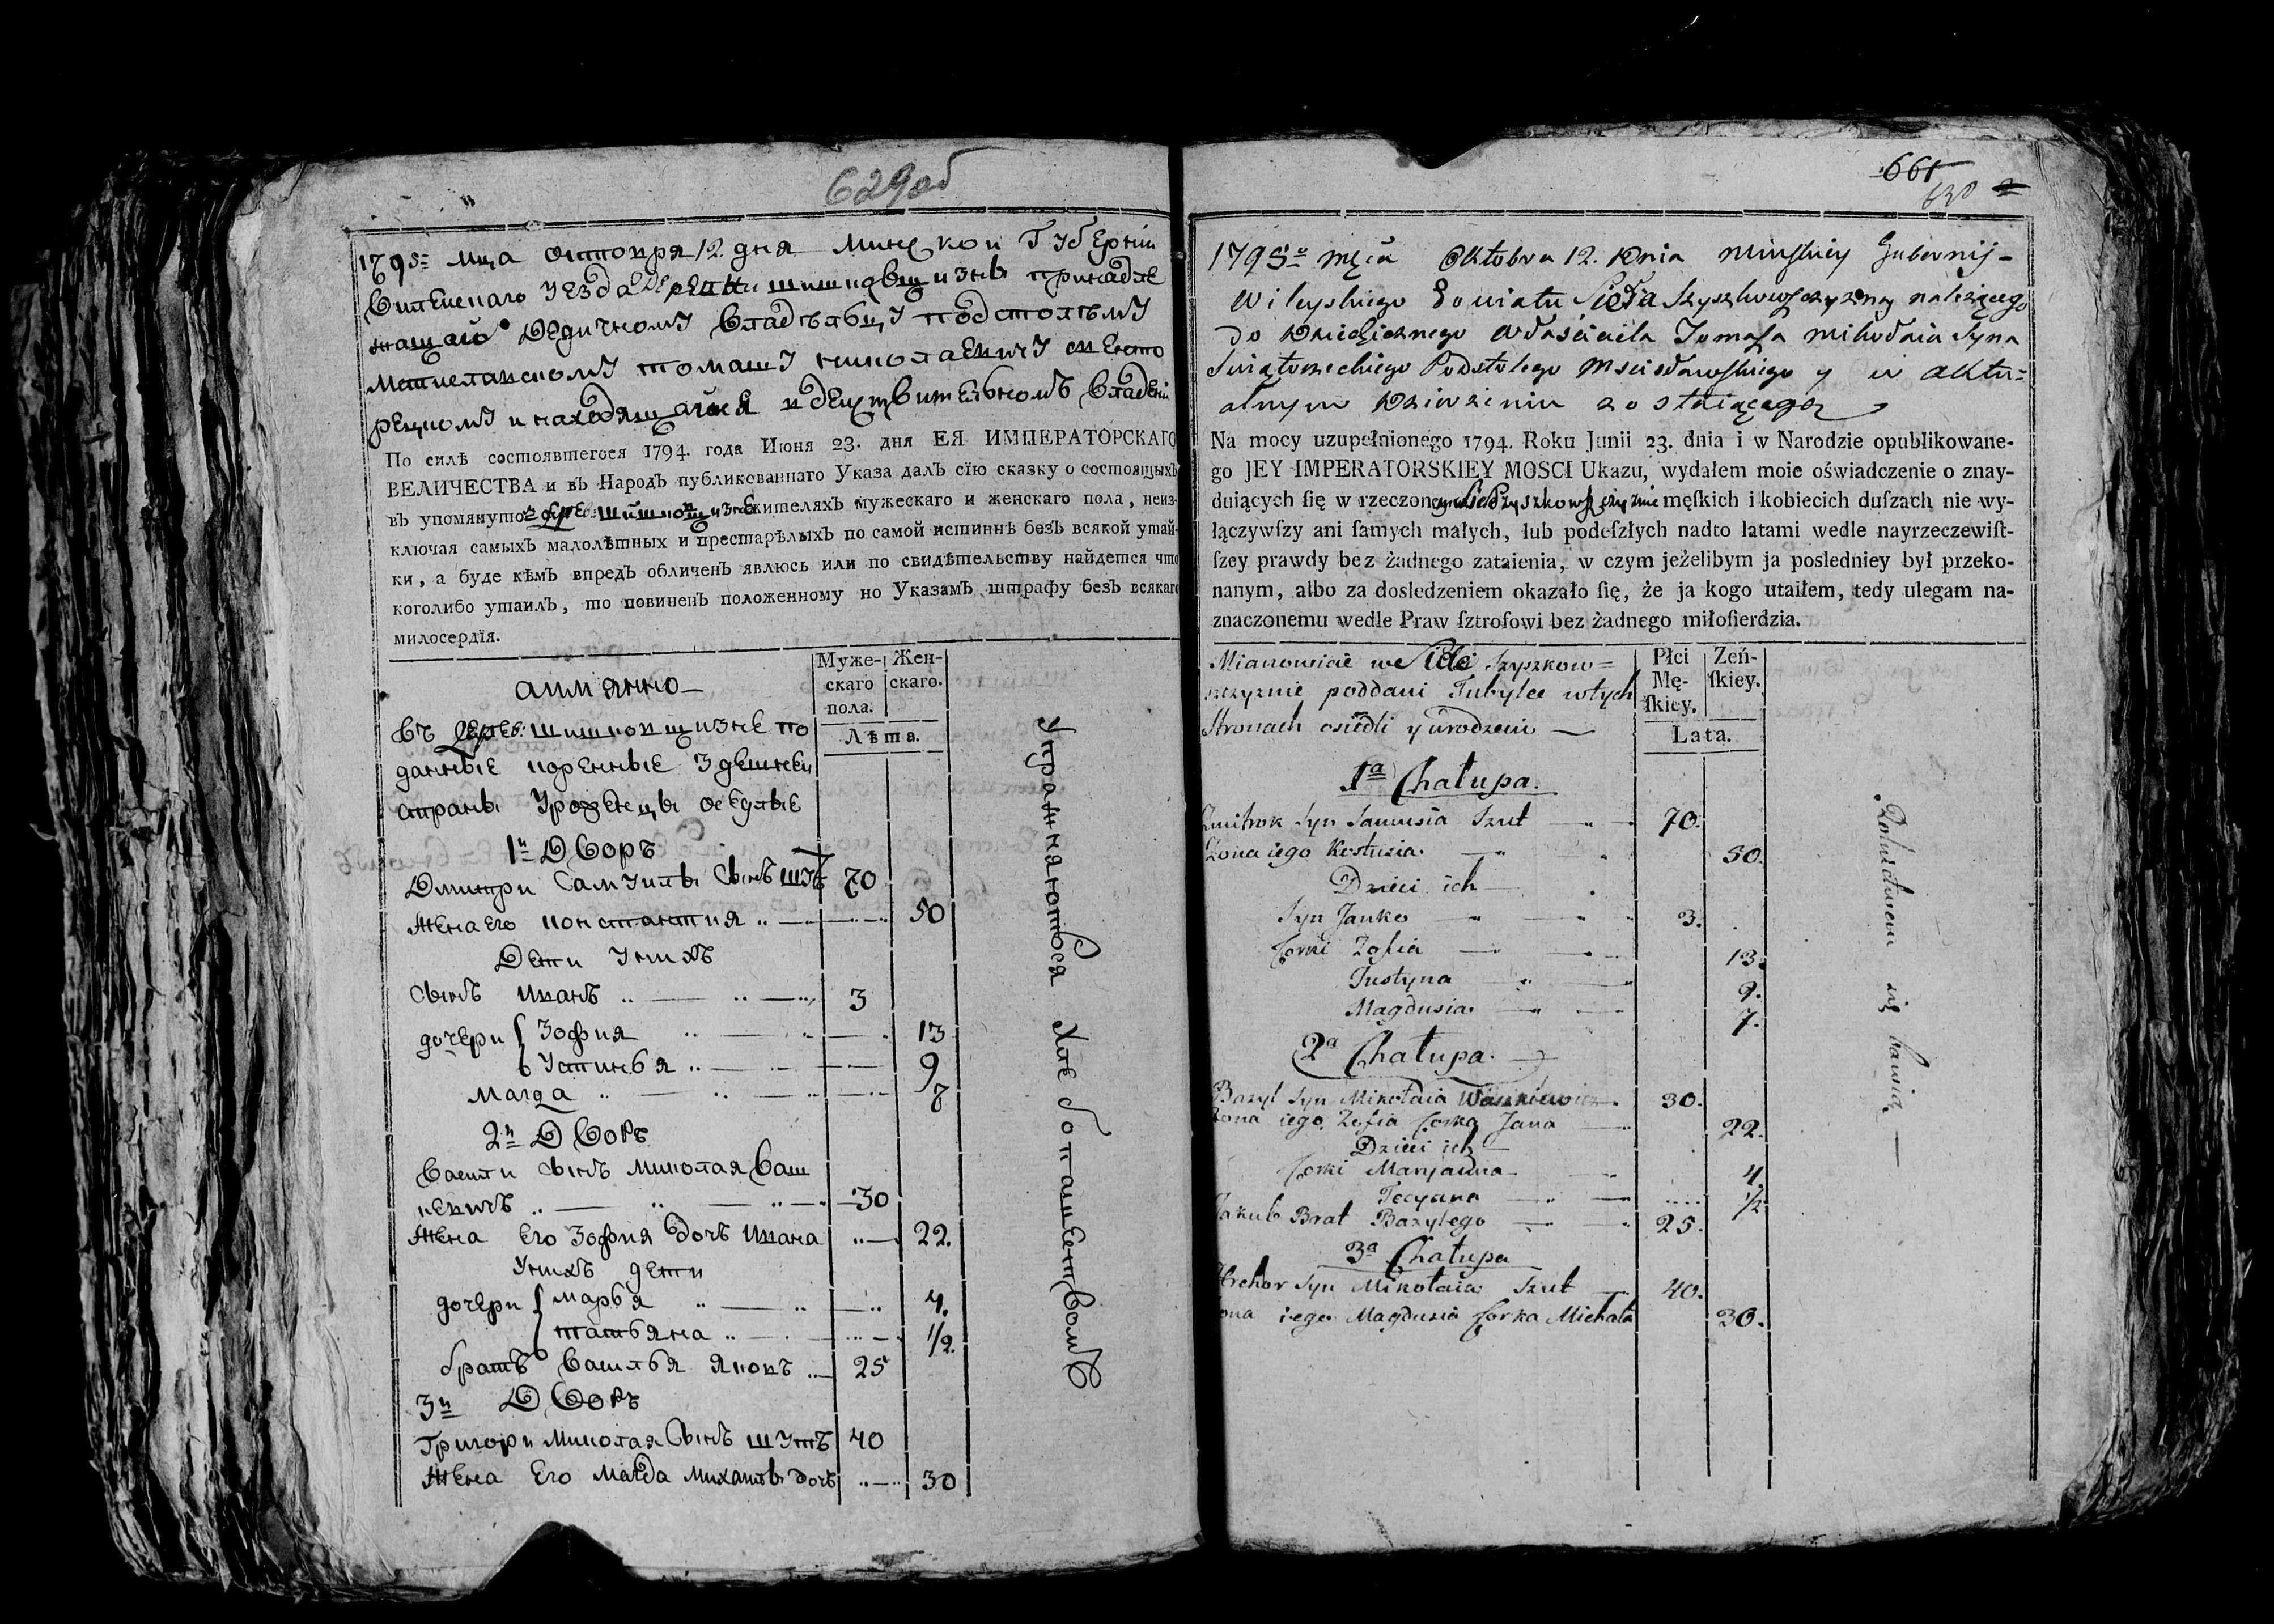 629об
1795= мца октовря 12. дня Минской Губернии
Вилейского Уезда деревни Шишковщизны принадле
жащаго Дедичному владѣльцу подстолѣму
Мстиславскому Томашу Николаевичу свенто
рецкому и находящагося в действительномъ владении
По силѣ состоявшегося 1794. года Июня 23. дня ЕЯ ИМПЕРАТОРСКАГО
ВЕЛИЧЕСТВА и въ НародЪ публикованнаго Указа далЪ сїю сказку о состоящыхЪ
въ упомянутой дерев: шишковщизне жителяхЪ мужескаго и женскаго пола, неиз-
ключая самыхЪ малолѣтныхЪ и престарѣлыхЪ по самой истиннѣ безЪ всякой утай-
ки, а буде кѣмЪ впредЪ обличенЪ явлюсь или по свидѣтельству найдется что
коголибо утаилЪ, то повиненЪ положенному по УказамЪ штрафу безЪ всякаго
милосердїя.
Муже-
скаго
пола.
Жен-
скаго.
Лѣта.
аимянно
въ дерев: шишковщизне по
данные коренные здешней
страны уроженцы оседлые
1й Дворъ
Дмитри Самуилы сынъ шутъ 70
жена его константия 50
Дети у нихъ
сынъ иванъ 3
дочери { Зофия 13
устинья 9
магда 7
2й Дворъ
Васили сынъ миколая Ваш
кевичъ 30
жена его Зофия дочъ ивана 22.
у нихъ дети
дочери { марья 4.
татьяна 1/2.
братъ василья яковъ 25
3й Дворъ
Григори миколая сынъ шутъ 40
жена его магда михаилы дочъ 30
Упражняются хлебопашествомъ
661
630
1795o męca Oktobra 12. Dnia Minskiey Gubernij
Wileyskiego Powiatu Sioła Szyszkowszczyzny należącego
do Dziedzicznego Właściciela Tomasza Mikołaia Syna
Swiątorzeckiego Podstolego Mscisławskiego y w aktu=
alnym Dzierżeniu zostaiącego
Na mocy uzupełnionego 1794. Roku Junii 23. dnia i w Narodzie opublikowane-
go JEY IMPERATORSKIEY MOSCI Ukazu, wydałem moie oświadczenie o znay-
duiących ſię w rzeczonym Siele Szyszkowszczyznie męſkich i kobiecich duſzach, nie wy-
łączywſzy ani ſamych małych, łub podeſzłych nadto latami wedle nayrzeczewiſt-
ſzey prawdy bez żadnego zataienia, w czym jeżelibym ja posledniey był przeko-
nanym, albo za dosledzeniem okazało ſię, że ja kogo utaiłem, tedy ulegam na-
znaczonemu wedle Praw ſztrofowi bez żadnego miłoſierdzia.
Płci
Mę-
ſkiey.
Zeń-
ſkiey.
Lata.
Mianowicie we Siele Szyszkow=
szczyznie poddani Tubylce w tych
Stronach osiedli y urodzeni
1a Chałupa.
Zmitrok Syn Samusia Szut 70.
Żona iego Kostusia 50.
Dzieci ich
Syn Janko 3.
Corki Zofia 13.
Justyna 9.
Magdusia 7.
2a Chałupa.
Bazyl Syn Mikołaia Waszkiewicz 30.
Żona iego Zofia Corka Jana 22.
Dzieci ich
Corki Maryanna 4.
Tecyana 1/2
Jakub Brat Bazylego 25.
3a Chałupa
Hrehor Syn Mikołaia Szut 40.
Żona iego Magdusia Corka Michała 30.
Rolnictwem się bawią